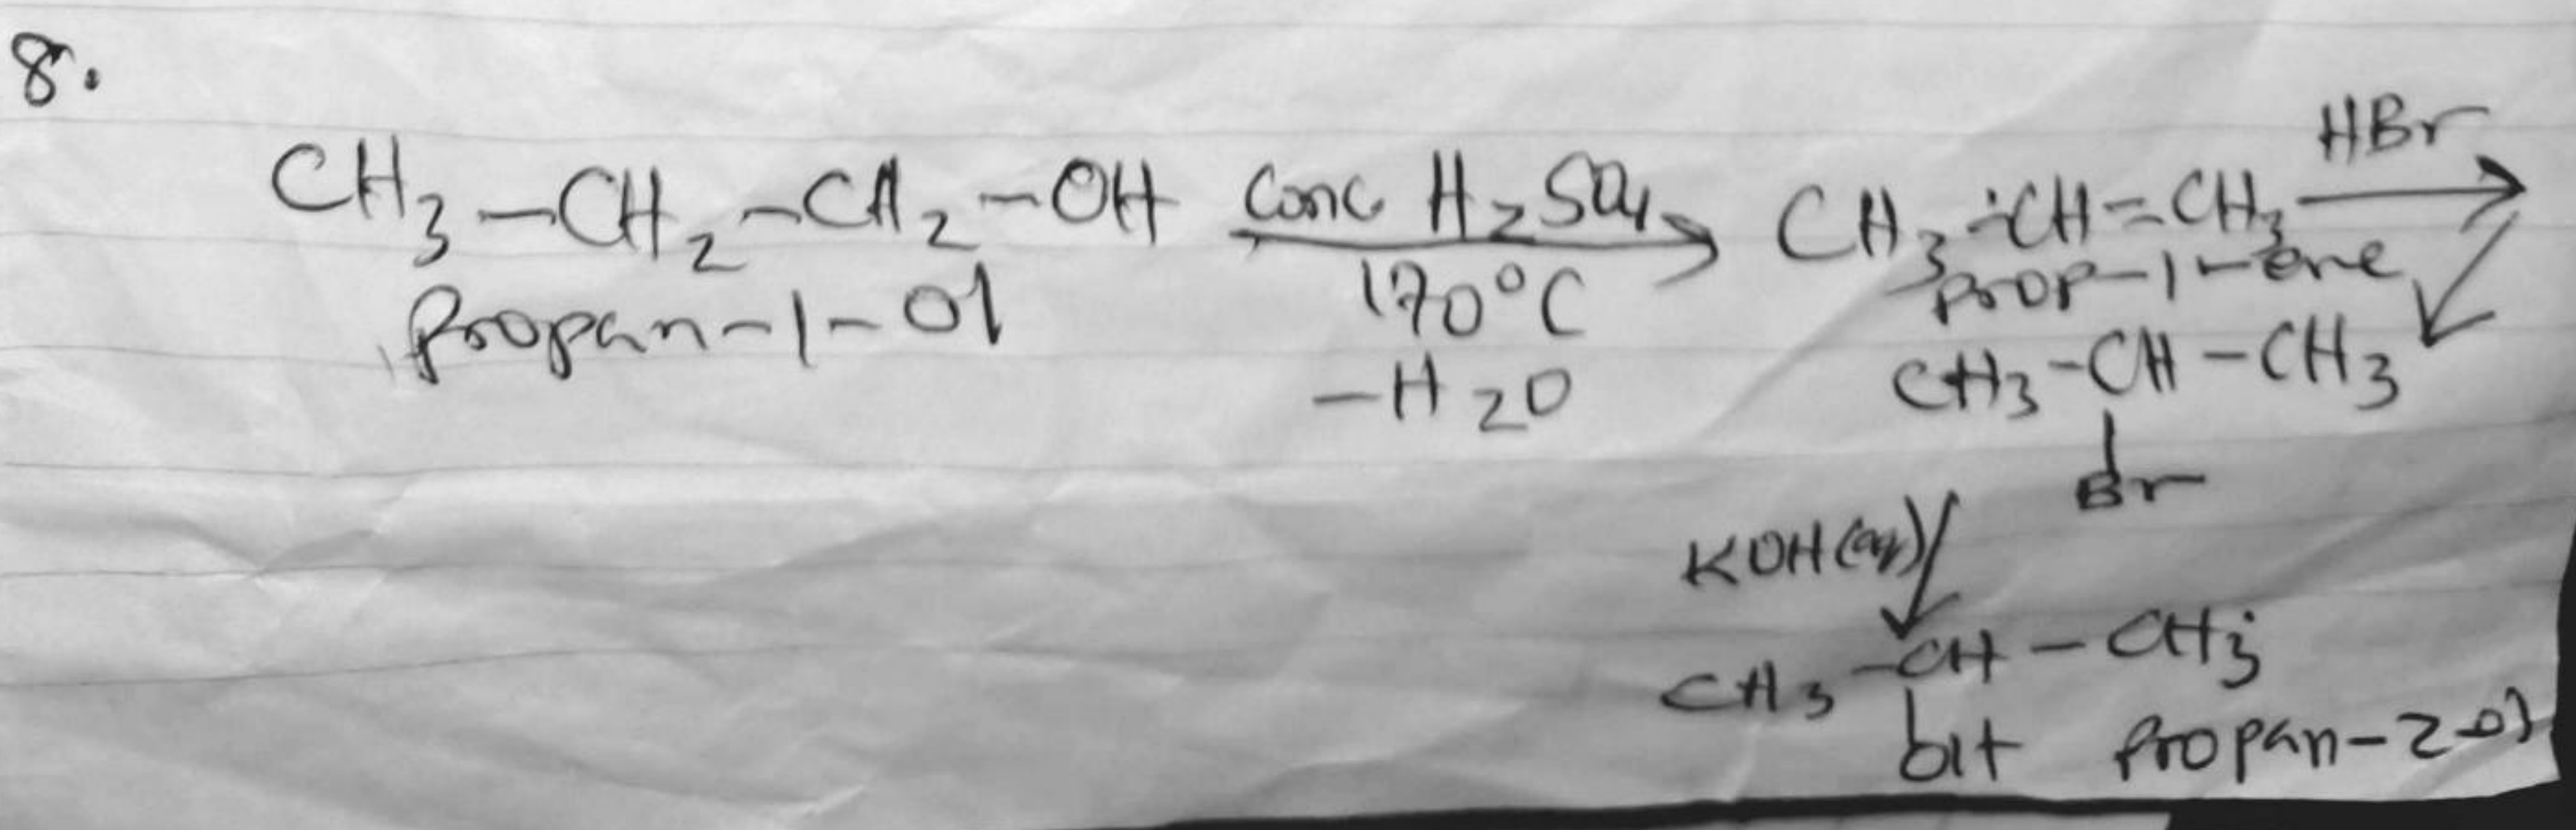 8.
CH3-CH2-CH2-OH conc H2SO4 CH3-CH=CH3 HBr
Propan-1-ol 170°C prop-1-ene
-H2O CH3-CH-CH3
Br
KOH(aq)
CH3-CH-CH3
OH Propan-2-ol